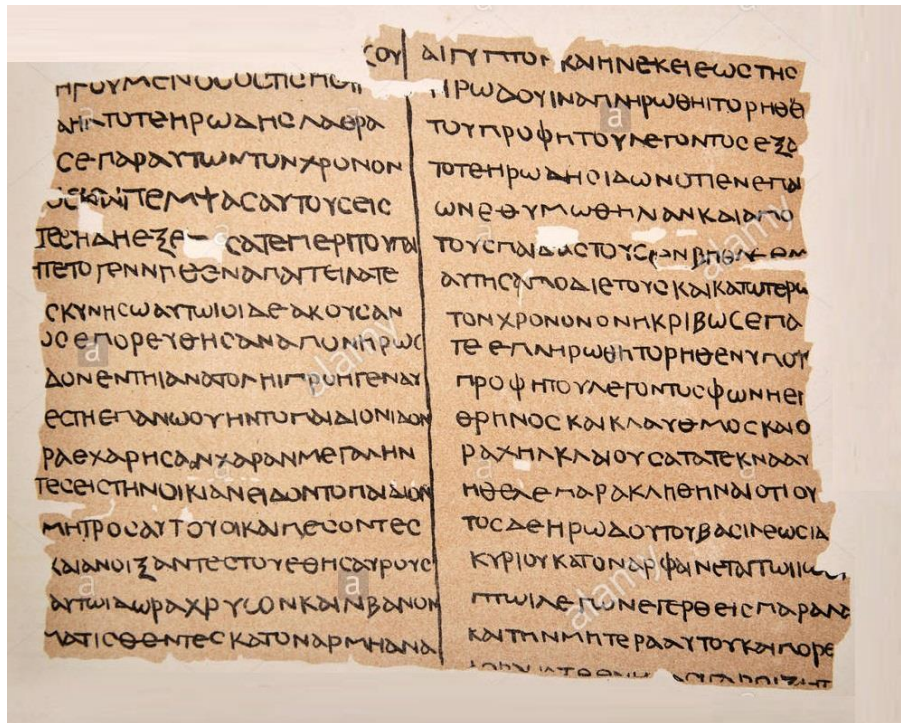 ϹΟΥ
ΗΓΟΥΜΕΝΟϹΟϹΤΙϹ
ΑΗΛΤΟΤΕΗΡΩΔΗϹΛΑΘΡΑ
ϹΕΠΑΡΑΥΤΩΝΤΟΝΧΡΟΝΟΝ
ΠΕΜΨΑϹΑΥΤΟΥϹΕΙϹ
ϹΑΤΕΠΕΡΙΤΟΥΠΑΙ
ΑΠΑΓΓΕΙΛΑΤΕ
ϹΚΥΝΗϹΩΑΥΤΩΙΟΙΔΕΑΚΟΥϹΑΝ
ΟϹΕΠΟΡΕΥΘΗϹΑΝΑ
ΔΟΝΕΝΤΗΙΑΝΑΤΟΛΗΙΠΡΟΗΓΕΝΑΥ
ΕϹΤΗΕΠΑΝΩΟΥΗΝΤΟΠΑΙΔΙΟΝΙΔΟΝ
ΡΑΕΧΑΡΗϹΑΝΧΑΡΑΝΜΕΓΑΛΗΝ
ΤΕϹΕΙϹΤΗΝΟΙΚΙΑΝΕΙΔΟΝΤΟΠΑΙΔΙΟΝ
ΜΗΤΡΟϹΑΥΤΟΥΟΙΚΑΙΠΕϹΟΝΤΕϹ
ΚΑΙΑΝΟΙΞΑΝΤΕϹΤΟΥϹΘΗϹΑΥΡΟΥϹ
ΑΥΤΩΙΔΩΡΑΧΡΥϹΟΝΚΑΙΛΙΒΑΝΟΝ
ΜΑΤΙϹΘΕΝΤΕϹΚΑΤΟΝΑΡΜΗΑΝΑ
ΑΙΓΥΠΤΟΝΚΑΙΗΝΕΚΕΙΕΩϹΤΗϹ
ΗΡΩΔΟΥΙΝΑΠΛΗΡΩΘΗΙΤΟΡΗΘΕ
ΤΟΥΠΡΟΦΗΤΟΥΛΕΓΟΝΤΟϹΕΞΑ
ΤΟΤΕΗΡΩΔΗϹΙΔΩΝΟΤΙΕΝΕΠΑΙ
ΩΝΕΘΥΜΩΘΗΛΙΑΝΚΑΙΑΠΟ
ΤΟΥϹΠΑΙΔΑϹΤΟΥϹΕΝΒΗΘΛΕΕΜ
ΑΥΤΗϹΑΠΟΔΙΕΤΟΥϹΚΑΙΚΑΤΩΤΕΡΩ
ΤΟΝΧΡΟΝΟΝΟΝΗΚΡΙΒΩϹΕΠΑ
ΤΕΕΠΛΗΡΩΘΗΤΟΡΗΘΕΝΥΠΟΤΟΥ
ΠΡΟΦΗΤΟΥΛΕΓΟΝΤΟϹΦΩΝΗΕΙ
ΘΡΗΝΟϹΚΑΙΚΛΑΥΘΜΟϹΚΑΙΟ
ΡΑΧΗΛΚΛΑΙΟΥϹΑΤΑΤΕΚΝΑΑΥ
ΗΘΕΛΕΠΑΡΑΚΛΗΘΗΝΑΙΟΤΙΟΥ
ΤΟϹΔΕΗΡΩΔΟΥΤΟΥΒΑϹΙΛΕΩϹΙΔ
ΚΥΡΙΟΥΚΑΤΟΝΑΡΦΑΙΝΕΤΑΙΤΩΙΙΩ
ΠΤΩΙΛΕΓΩΝΕΓΕΡΘΕΙϹΠΑΡΑΛΑ
ΚΑΙΤΗΝΜΗΤΕΡΑΑΥΤΟΥΚΑΙΠΟΡΕ
alamy